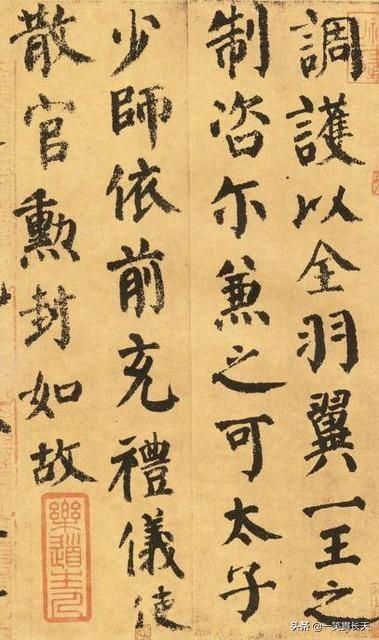 調護以全羽翼一王之
制咨尓兼之可太子
少師依前充禮儀使
散官勲封如故
樂道主人
头条 @一笑望长天